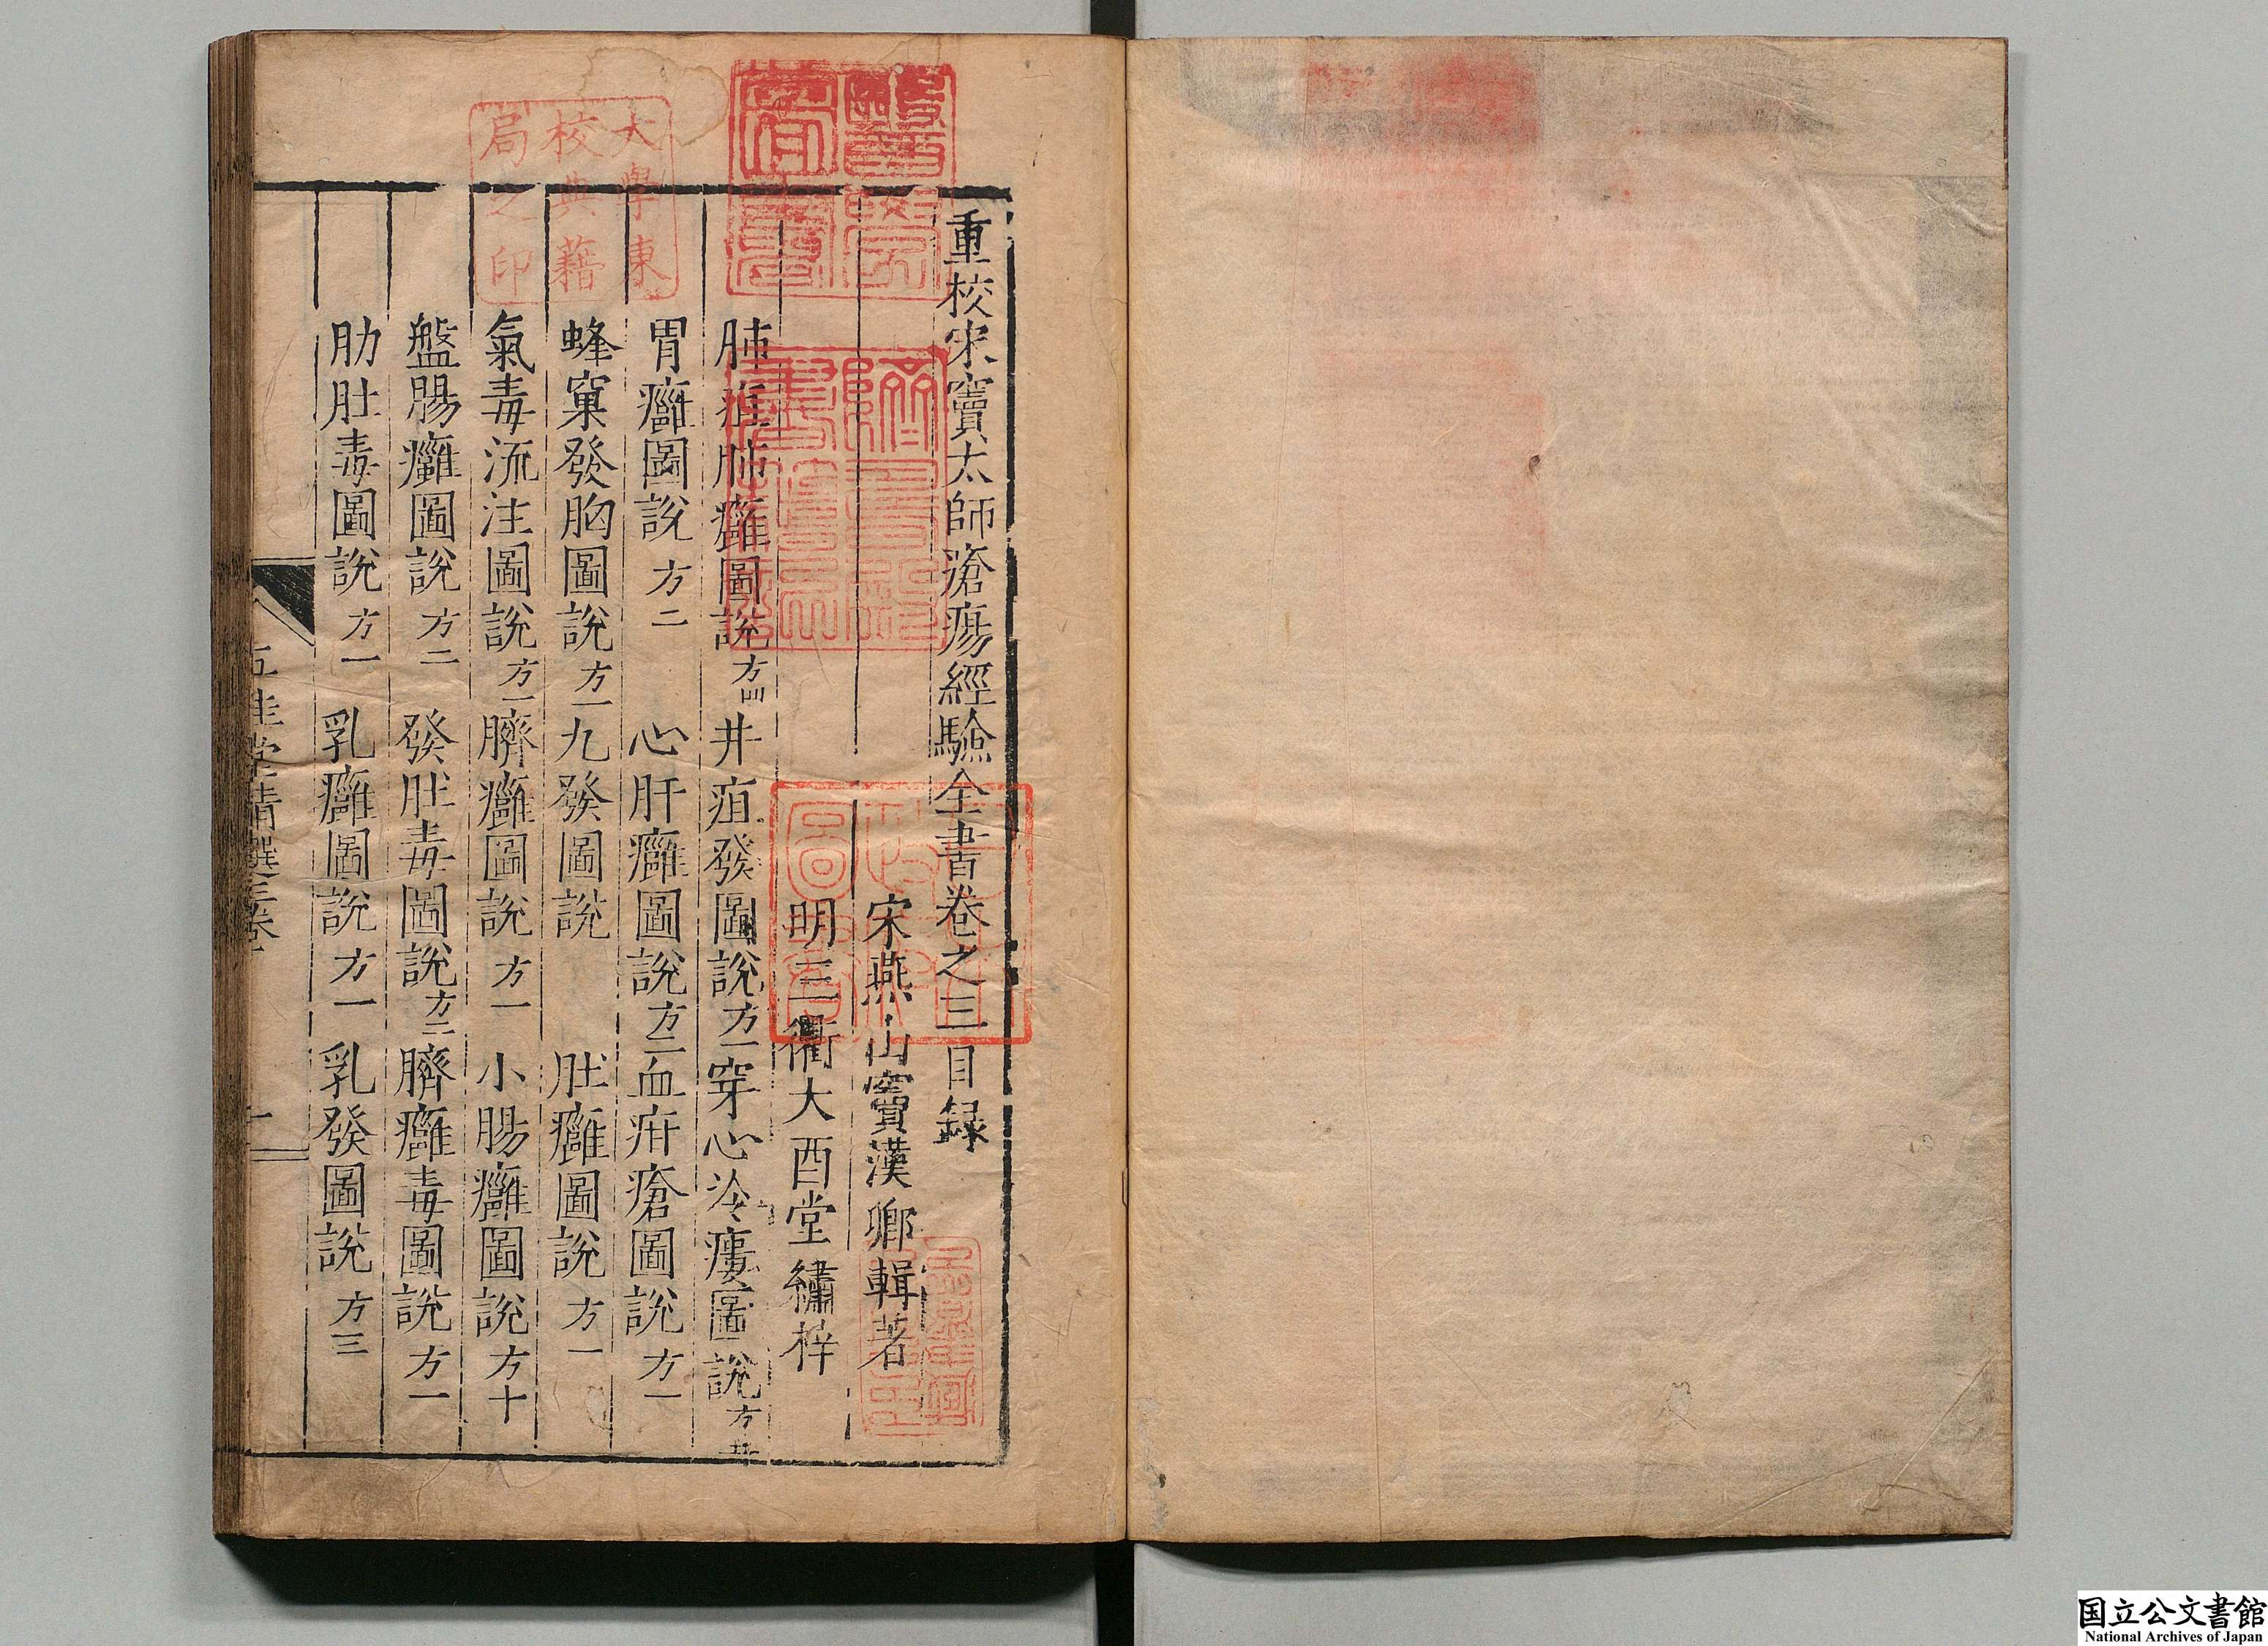 重校宋竇太師瘡瘍經驗全書卷之三目録
宋燕山竇漢卿輯著
明三衢大酉堂繡梓
肺疽肺癰圖說方四 井疽發圖說方一 穿心冷瘻圖說
胃癰圖說方二 心肝癰圖說方二 血疳瘡圖說方一
蜂窠發胸圖說方一 九發圖說 肚癰圖說方一
氣毒流注圖說方一 臍癰圖說方一 小腸癰圖說方十
盤腸癰圖說方二 發肚毒圖說方二 臍癰毒圖說方一
肋肚毒圖說方一 乳癰圖說方一 乳發圖說方三
大學東
校典藉
局之印
躋壽館
醫學
圖書
日本
政府
圖書
国立公文書館
National Archives of Japan